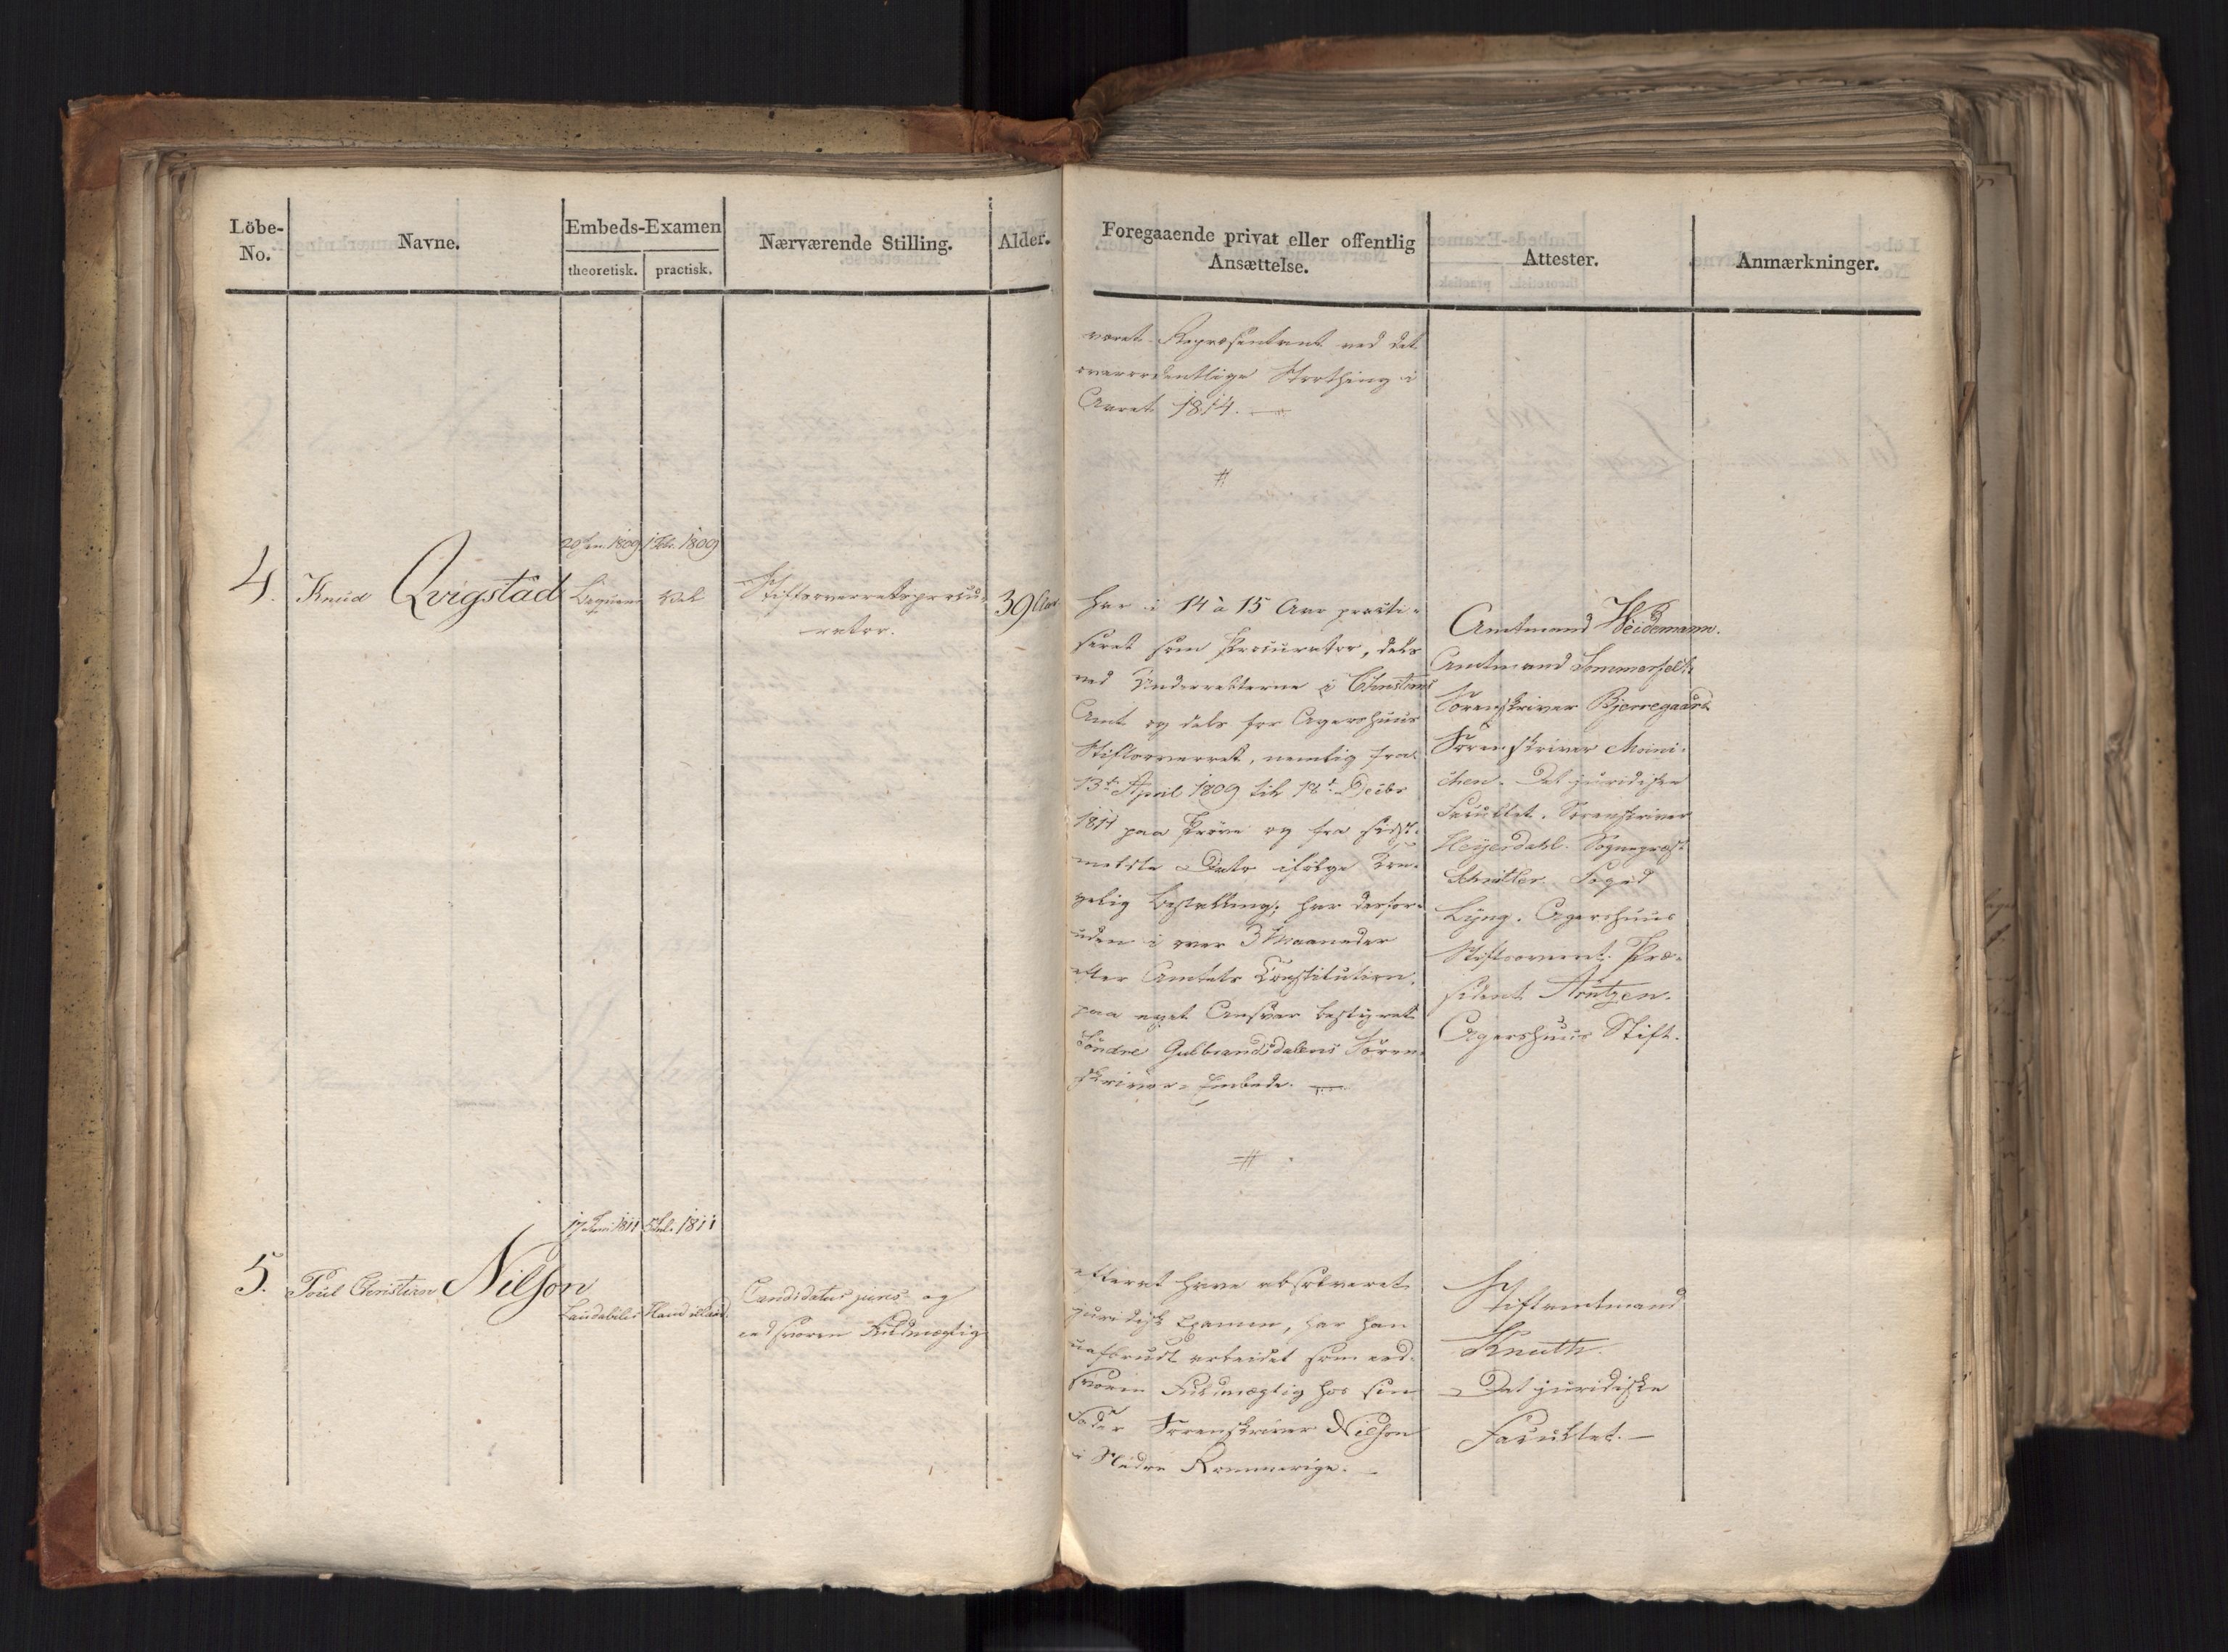 Löbe-
No.
Navne.
Embeds-Examen
theoretisk. practisk.
Nærværende Stilling.
Alder.
Foregaaende privat eller offentlig
Ansættelse.
Attester.
Anmærkninger.
været Repræsentant ved det
overordentlige Storthing i
Aaret 1814.
#
4. Knud Qvigstad
20 Jan. 1809 1 Febr. 1809
Beqvem Vel
Stiftsoverretsprocu-
rator.
39 Aar
har i 14 à 15 Aar practi-
seret som Procurator, dels
ved Underretterne i Christians
Amt og dels for Agershuus
Stiftsoverret, nemlig fra
13de April 1809 til 18de Decbr
1811 paa Prøve og fra sidst-
meldte Dato ifølge Kon-
gelig Bestalling; har desfor-
uden i over 3 Maaneder
efter Amtets Constitution,
paa eget Ansvar bestyret
Söndre Gulbrandsdalens Soren-
skriver-Embede.
#
Amtmand Weidemann.
Amtmand Sommerfelt.
Sorenskriver Bjerregaard
Sorenskriver Moini-
chen. Det juridiske
Facultet. Sorenskriver
Heyerdahl. Sognepræst
Fogd
Lyng. Agershuus
Stiftsoverret. Præ-
sident Arntzen.
Agershuus Stift.
5. Poul Christian Nilson
17 Juni 1811 Jul. 1811
Laudabilis Haud illaud.
Candidatus juris og
edsvoren Fuldmægtig
efterat have absolveret
juridisk Examen, har han
uafbrudt arbeidet som eed-
svoren Fuldmægtig hos sin
Fader Sorenskriver Nilson
i Nedre Rommerige.
Stiftamtmand
Knuth.
Det juridiske
Facultet.